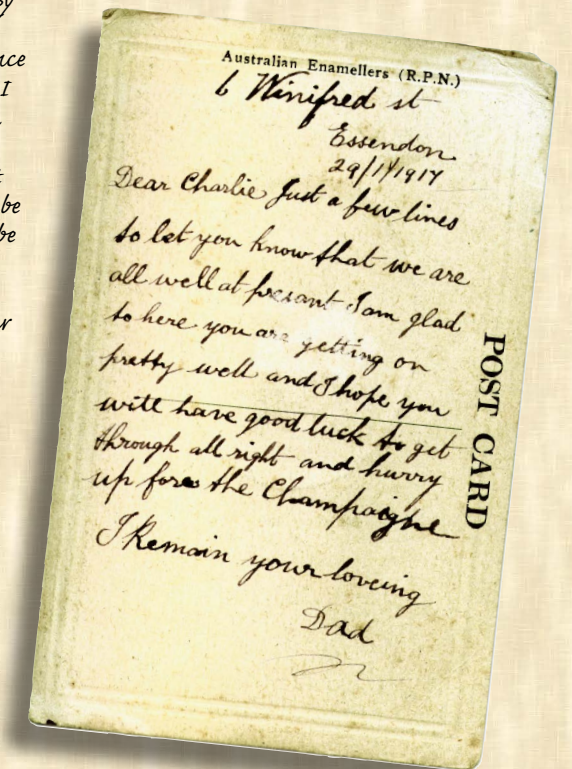 by
nce
I
t
be
be
w
Australian Enamellers (R.P.N.)
6 Winifred st
Essendon
29/1/1917
Dear Charlie Just a few lines
to let you know that we are
all well at presant I am glad
to here you are getting on
pretty well and I hope you
will have good luck to get
through all right and hurry
up fore the Champaigne
I Remain your loveing
Dad
POST CARD